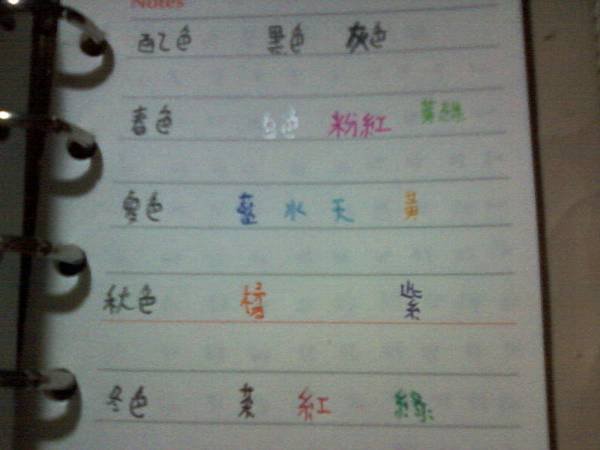 Notes
配色 黑色 灰色
春色 白色 粉紅 黃綠
夏色 藍 水 天 黃
秋色 橘 紫
冬色 茶 紅 綠